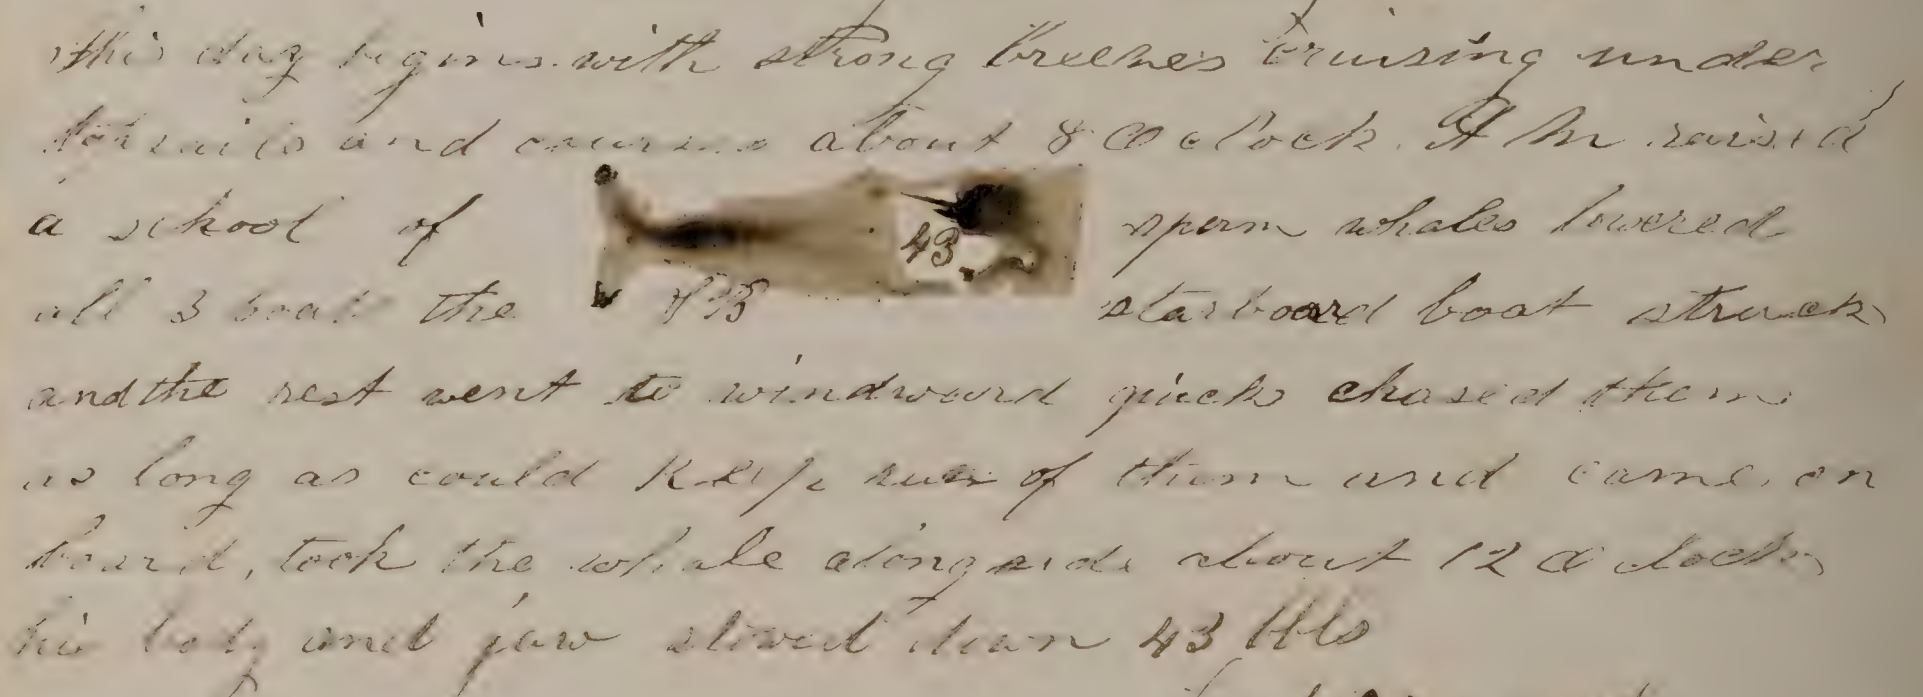 this day begins with strong breezes cruising under
topsails and courses about 8 O clock A M raised
a school of 43 sperm whales lowered
all 3 boats the starboard boat struck
and the rest went to windward quick chased them
as long as could keep run of them and came on
board, took the whale alongside about 12 O clock
his body and jaw stowed down 43 bbls